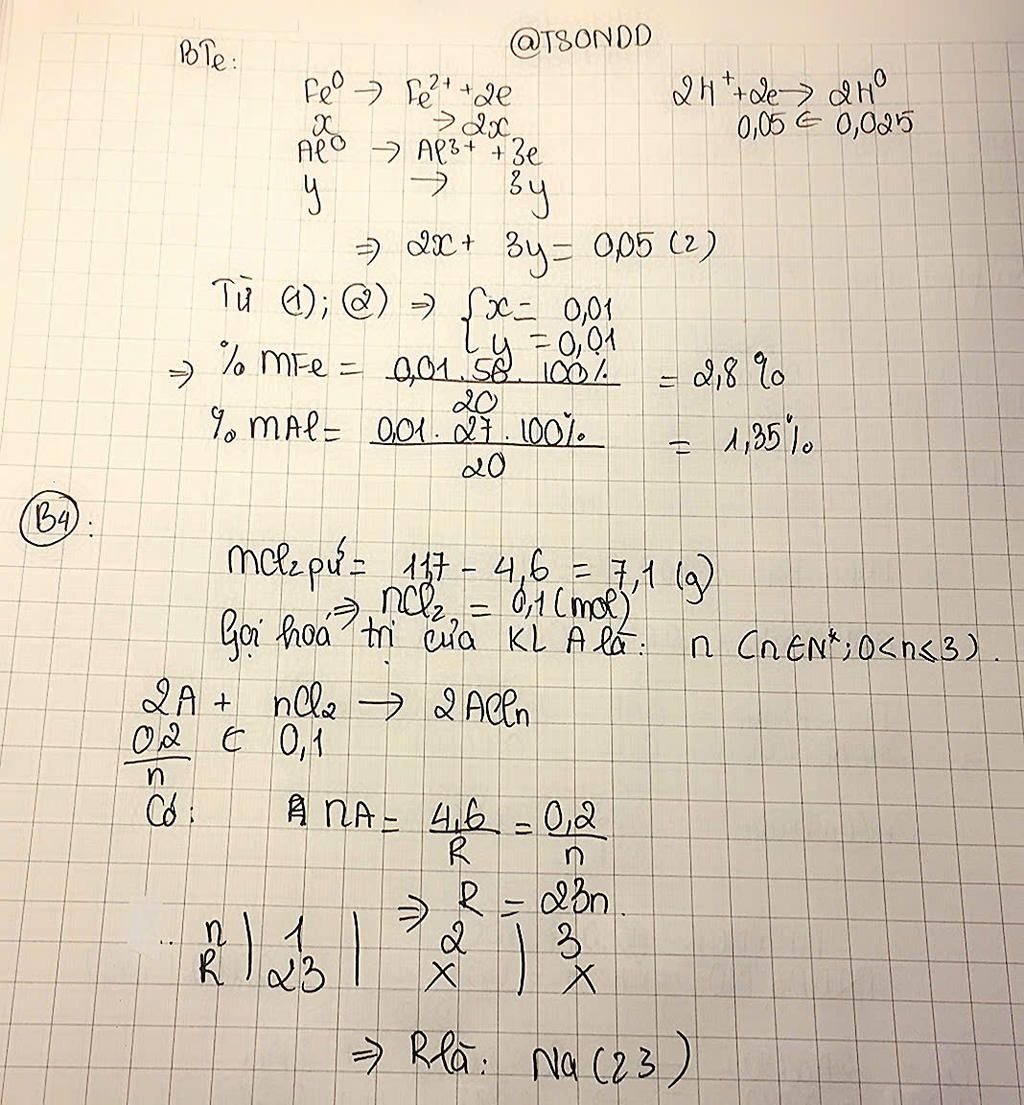 @TSONDD
BTe:
Fe⁰ → Fe²⁺ + 2e 2H⁺ + 2e → 2H⁰
x → 2x 0,05 ← 0,025
Al⁰ → Al³⁺ + 3e
y → 3y
⇒ 2x + 3y = 0,05 (2)
Từ (1); (2) ⇒ { x = 0,01
y = 0,01
⇒ % mFe = 0,01 . 56 . 100% / 20 = 2,8 %
% mAl = 0,01 . 27 . 100% / 20 = 1,35%
B4:
mCl₂ pứ = 11,7 - 4,6 = 7,1 (g)
⇒ nCl₂ = 0,1 (mol)
Gọi hoá trị của KL A là: n (n ∈ N*; 0 < n ≤ 3).
2A + nCl₂ → 2ACln
0,2 / n ← 0,1
Có: nA = 4,6 / R = 0,2 / n
⇒ R = 23n.
n | 1 | 2 | 3
R | 23 | X | X
⇒ R là: Na (23)